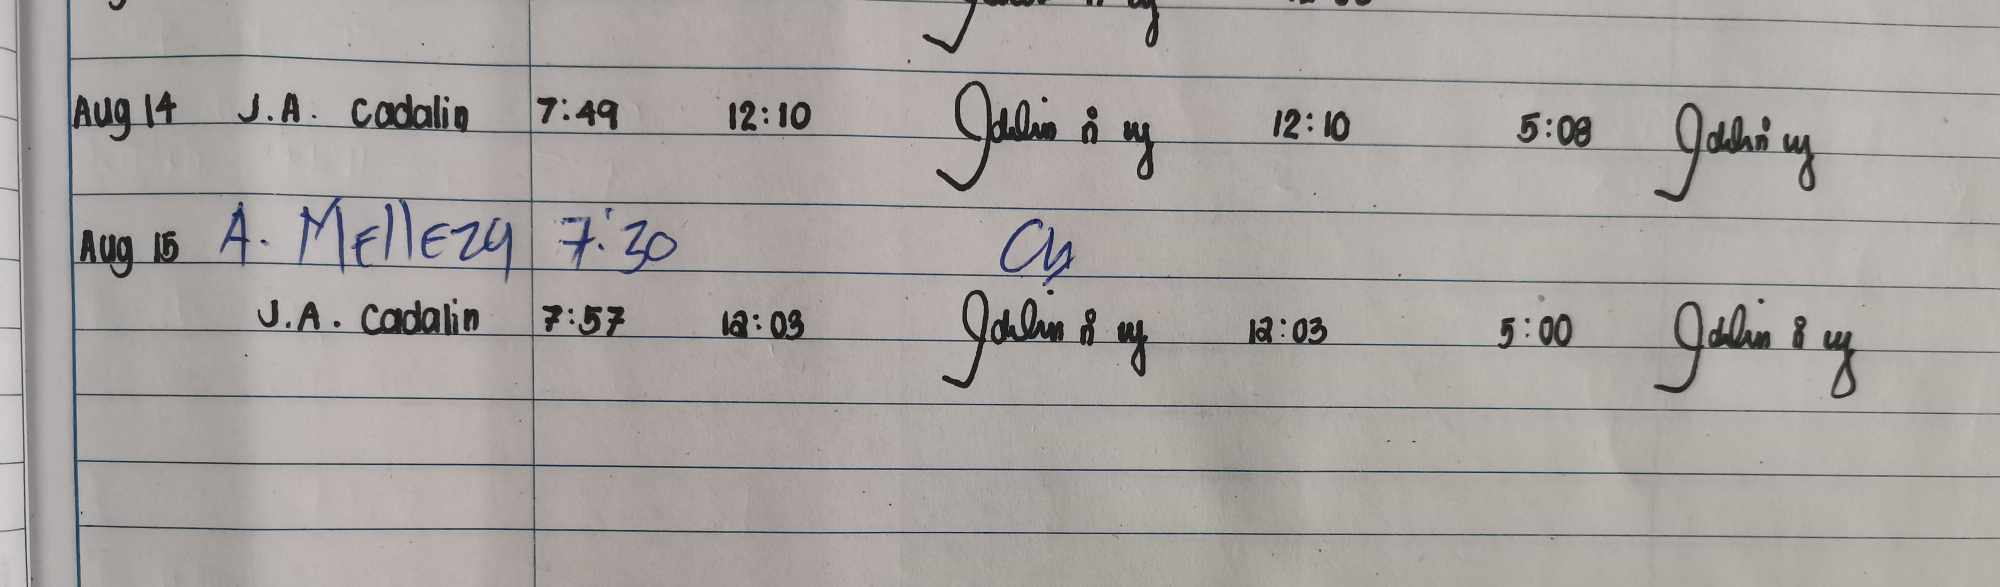 Aug 14 J.A. Cadalin 7:49 12:10 12:10 5:08
Aug 15 A. MEllEza 7:30
J.A. Cadalin 7:57 12:03 12:03 5:00